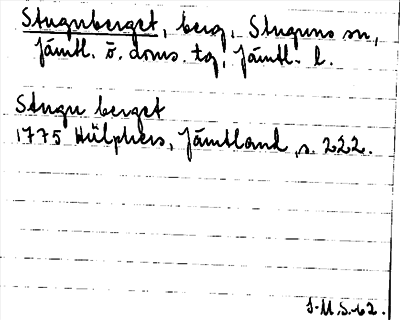 Stuguberget, berg, Stuguns sn,
Jämtl. ö. doms. tg, Jämtl. l.
Stugu berget
1775 Hülphers, Jämtland, s. 222.
J-M.S.-62.